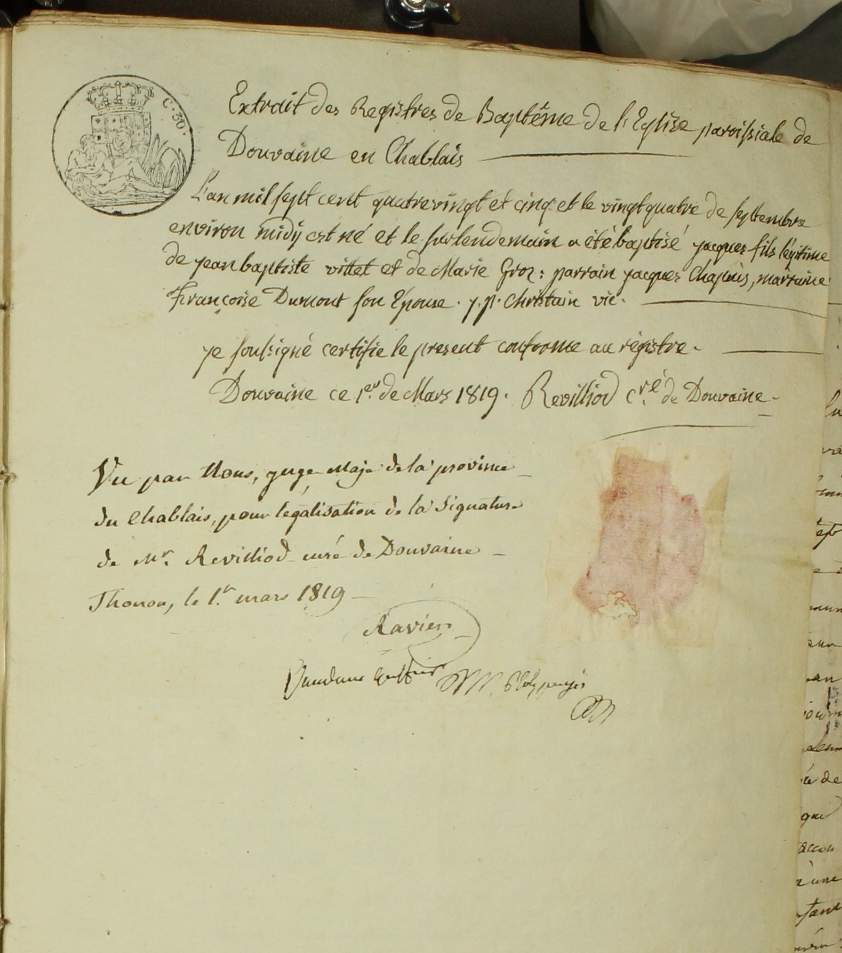 C. 50.
Extrait des Registres de Baptême de l'Eglise paroissiale de
Douvaine en Chablais
L'an mil sept cent quatrevingt et cinq et le vingt quatre de septembre
environ midÿ est né et le surlendemain a été baptisé jacques fils légitime
de jean baptiste vittet et de Marie Groz: parrain jacques Chapuis, marraine
Françoise Dumont son Epouse. p. p. Christain vic.
je soussigné certifie le present conforme au régistre.
Douvaine ce 1.er de Mars 1819. Revilliod c.ré de Douvaine.
Vu par Nous, juge Maje de la province
du Chablais, pour légalisation de la signature
de Mr. Revilliod curé de Douvaine
Thonon, le 1.r mars 1819
Ravier